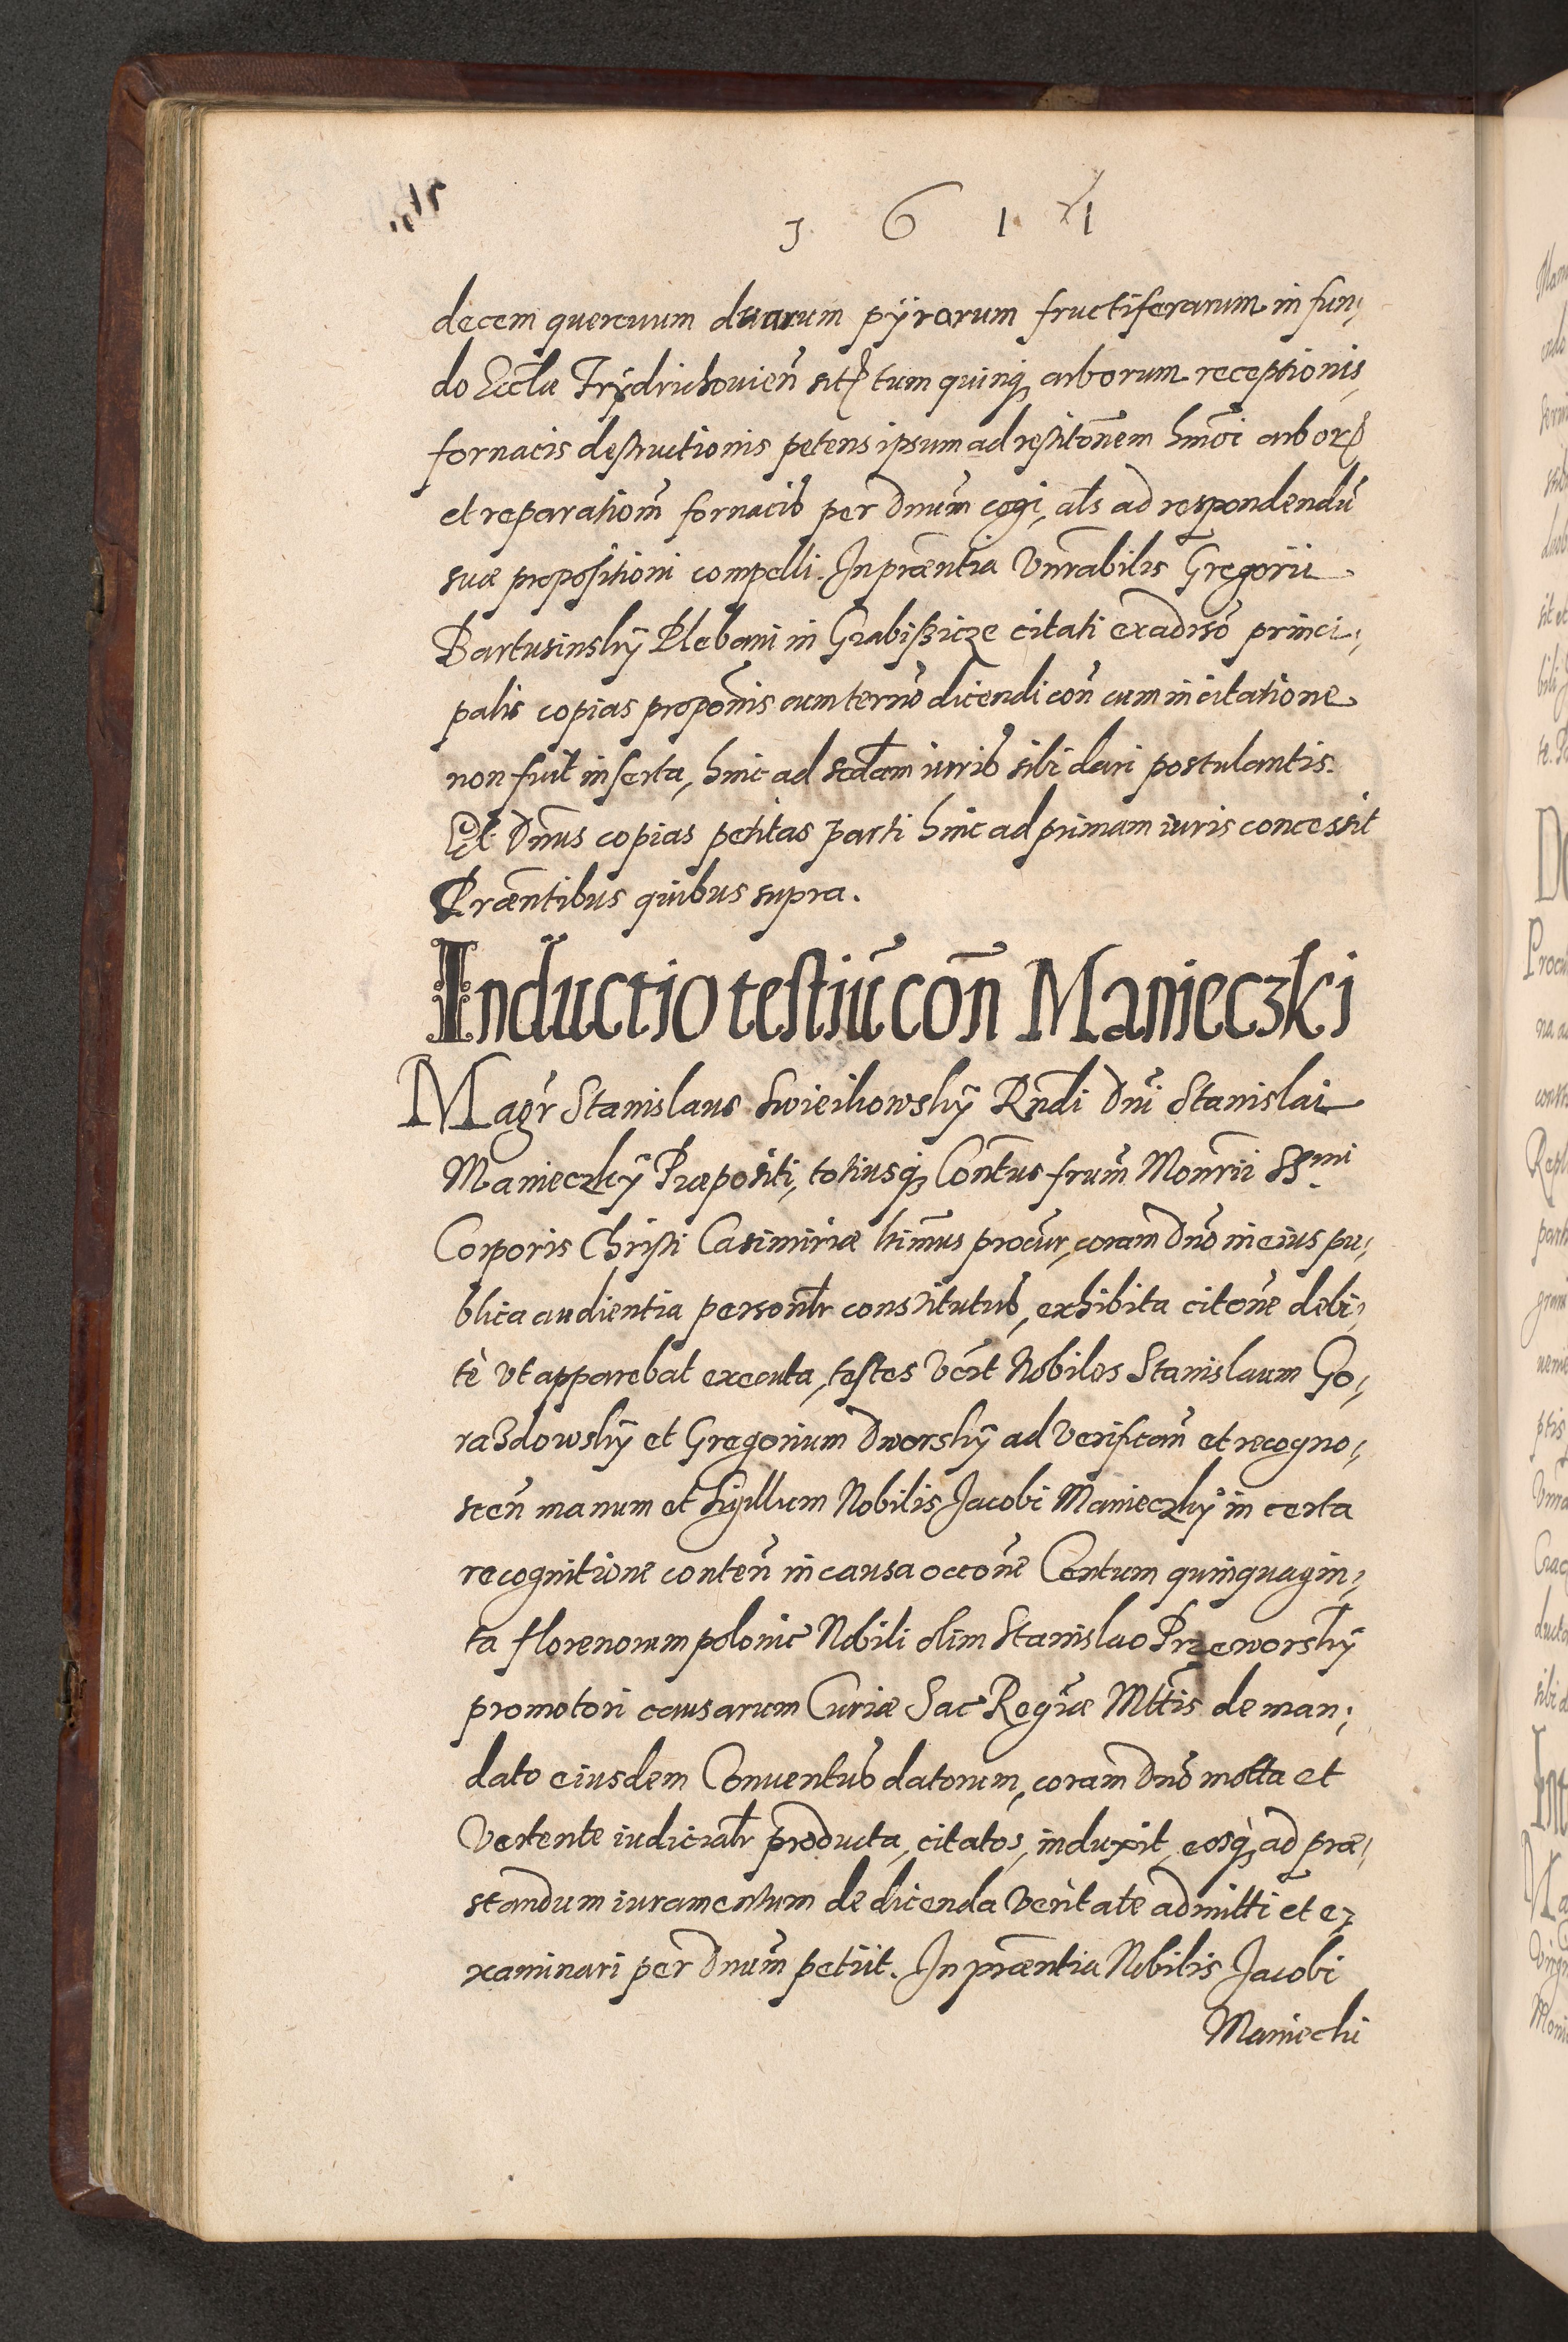 1 6 1 1
decem quercuum duarum pÿrorum fructiferarum in fun,
do Eccłæ Frÿdrichouien̄ sit tum quinq₃ arborum receptionis,
fornacis destructionis petens ipsum ad restitōnem hm̄oi arboꝝ
et reparatiōm̄ fornacis per Dnūm cogi, als ad respondendū
suæ propositioni compelli. In præntia Vnrabilis Gregorii
Bartusinskÿ Plebani in Grabißicze citati ex adūso princi,
palis copias propōnis cum termō dicendi con̄ cum in citatione
non fuit inserta, hinc ad scdam iuris sibi dari postulantis.
Et Dnūs copias petitas parti hinc ad primam iuris concessit
Præntibus quibus supra.
Inductio testiū con̄ Manieczki
Magr̄ Stanislaus Swiecihowskÿ Rndi Dnī Stanislai
Manieczkÿ Præpositi, totiusq₃ Contus frum̄ Monrii SSmi
Corporis Christi Casimiriæ ltimus procur, coram Dnō in eius pu,
blica audientia personlr constitutus, exhibita citōne debi,
tè vt apparebat executa, testes vēt Nobiles Stanislaum Go,
razdowskÿ et Gregorium Dworskÿ ad verifican̄ et recogno,
scen̄ manum et sigillum Nobilis Jacobi Manieczkÿ in certa
recognitione conten̄ in causa occōne Centum quinquagin,
ta florenorum polonic Nobili olim Stanislao Przeworskÿ
promotori causarum Curiæ Sac Regiæ Mttis de man,
dato eiusdem Conuentus datorum, coram Dnō mota et
vertente iudicialr producta, citatos, induxit, eosq₃ ad præ,
standum iuramentum de dicenda veritate admitti et e,
xaminari per Dnūm petiit. In præntia Nobilis Jacobi
Maniecki